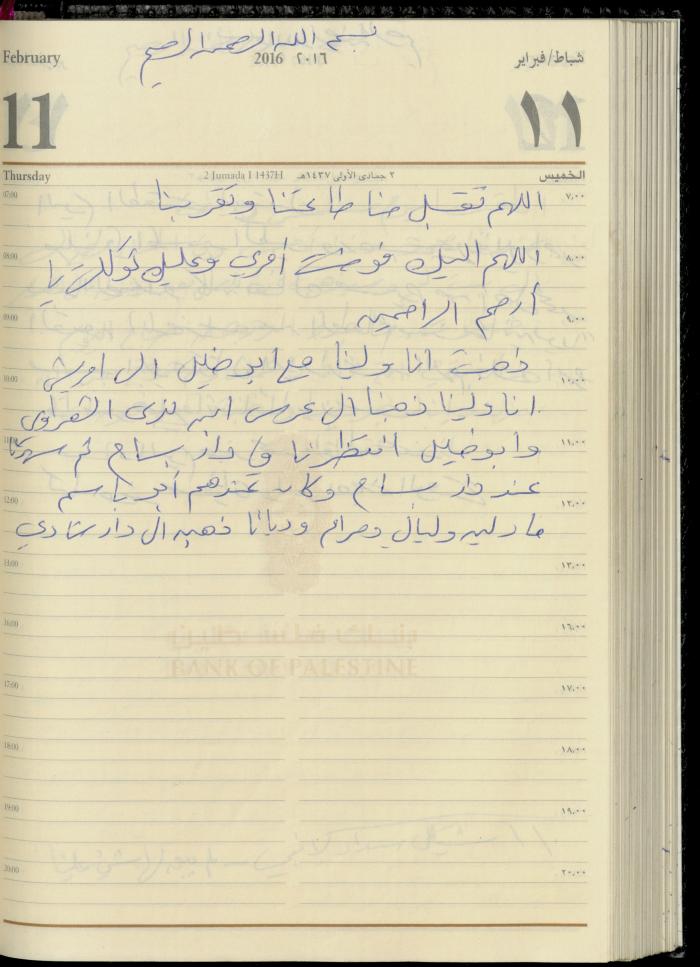 بسم الله الرحمن الرحيم
February 2016 ٢٠١٦ شباط/فبراير
11 ١١
Thursday 2 Jumada I 1437H ٢ جمادى الأولى ١٤٣٧هـ الخميس
07:00 اللهم تقبل منا طاعتنا وتقربنا ٧:٠٠
08:00 اللهم اليك فوضت أمري وعليك توكلت يا ٨:٠٠
09:00 أرحم الراحمين ٩:٠٠
ذهبت انا ولينا مع ابو خليل الى
10:00 ١٠:٠٠
انا ولينا ذهبنا ال عرس ابن الشعراوي
وابو خليل انتظرنا في دار بسام ثم سهرنا ١١:٠٠
عند دار بسام وكان عندهم أبو باسم
12:00 ١٢:٠٠
مادلين وليال ومرام وديانا ذهبن ال دار شادي
١٣:٠٠
16:00 ١٦:٠٠
بنك فلسطين
BANK OF PALESTINE
17:00 ١٧:٠٠
18:00 ١٨:٠٠
19:00 ١٩:٠٠
20:00 ٢٠:٠٠